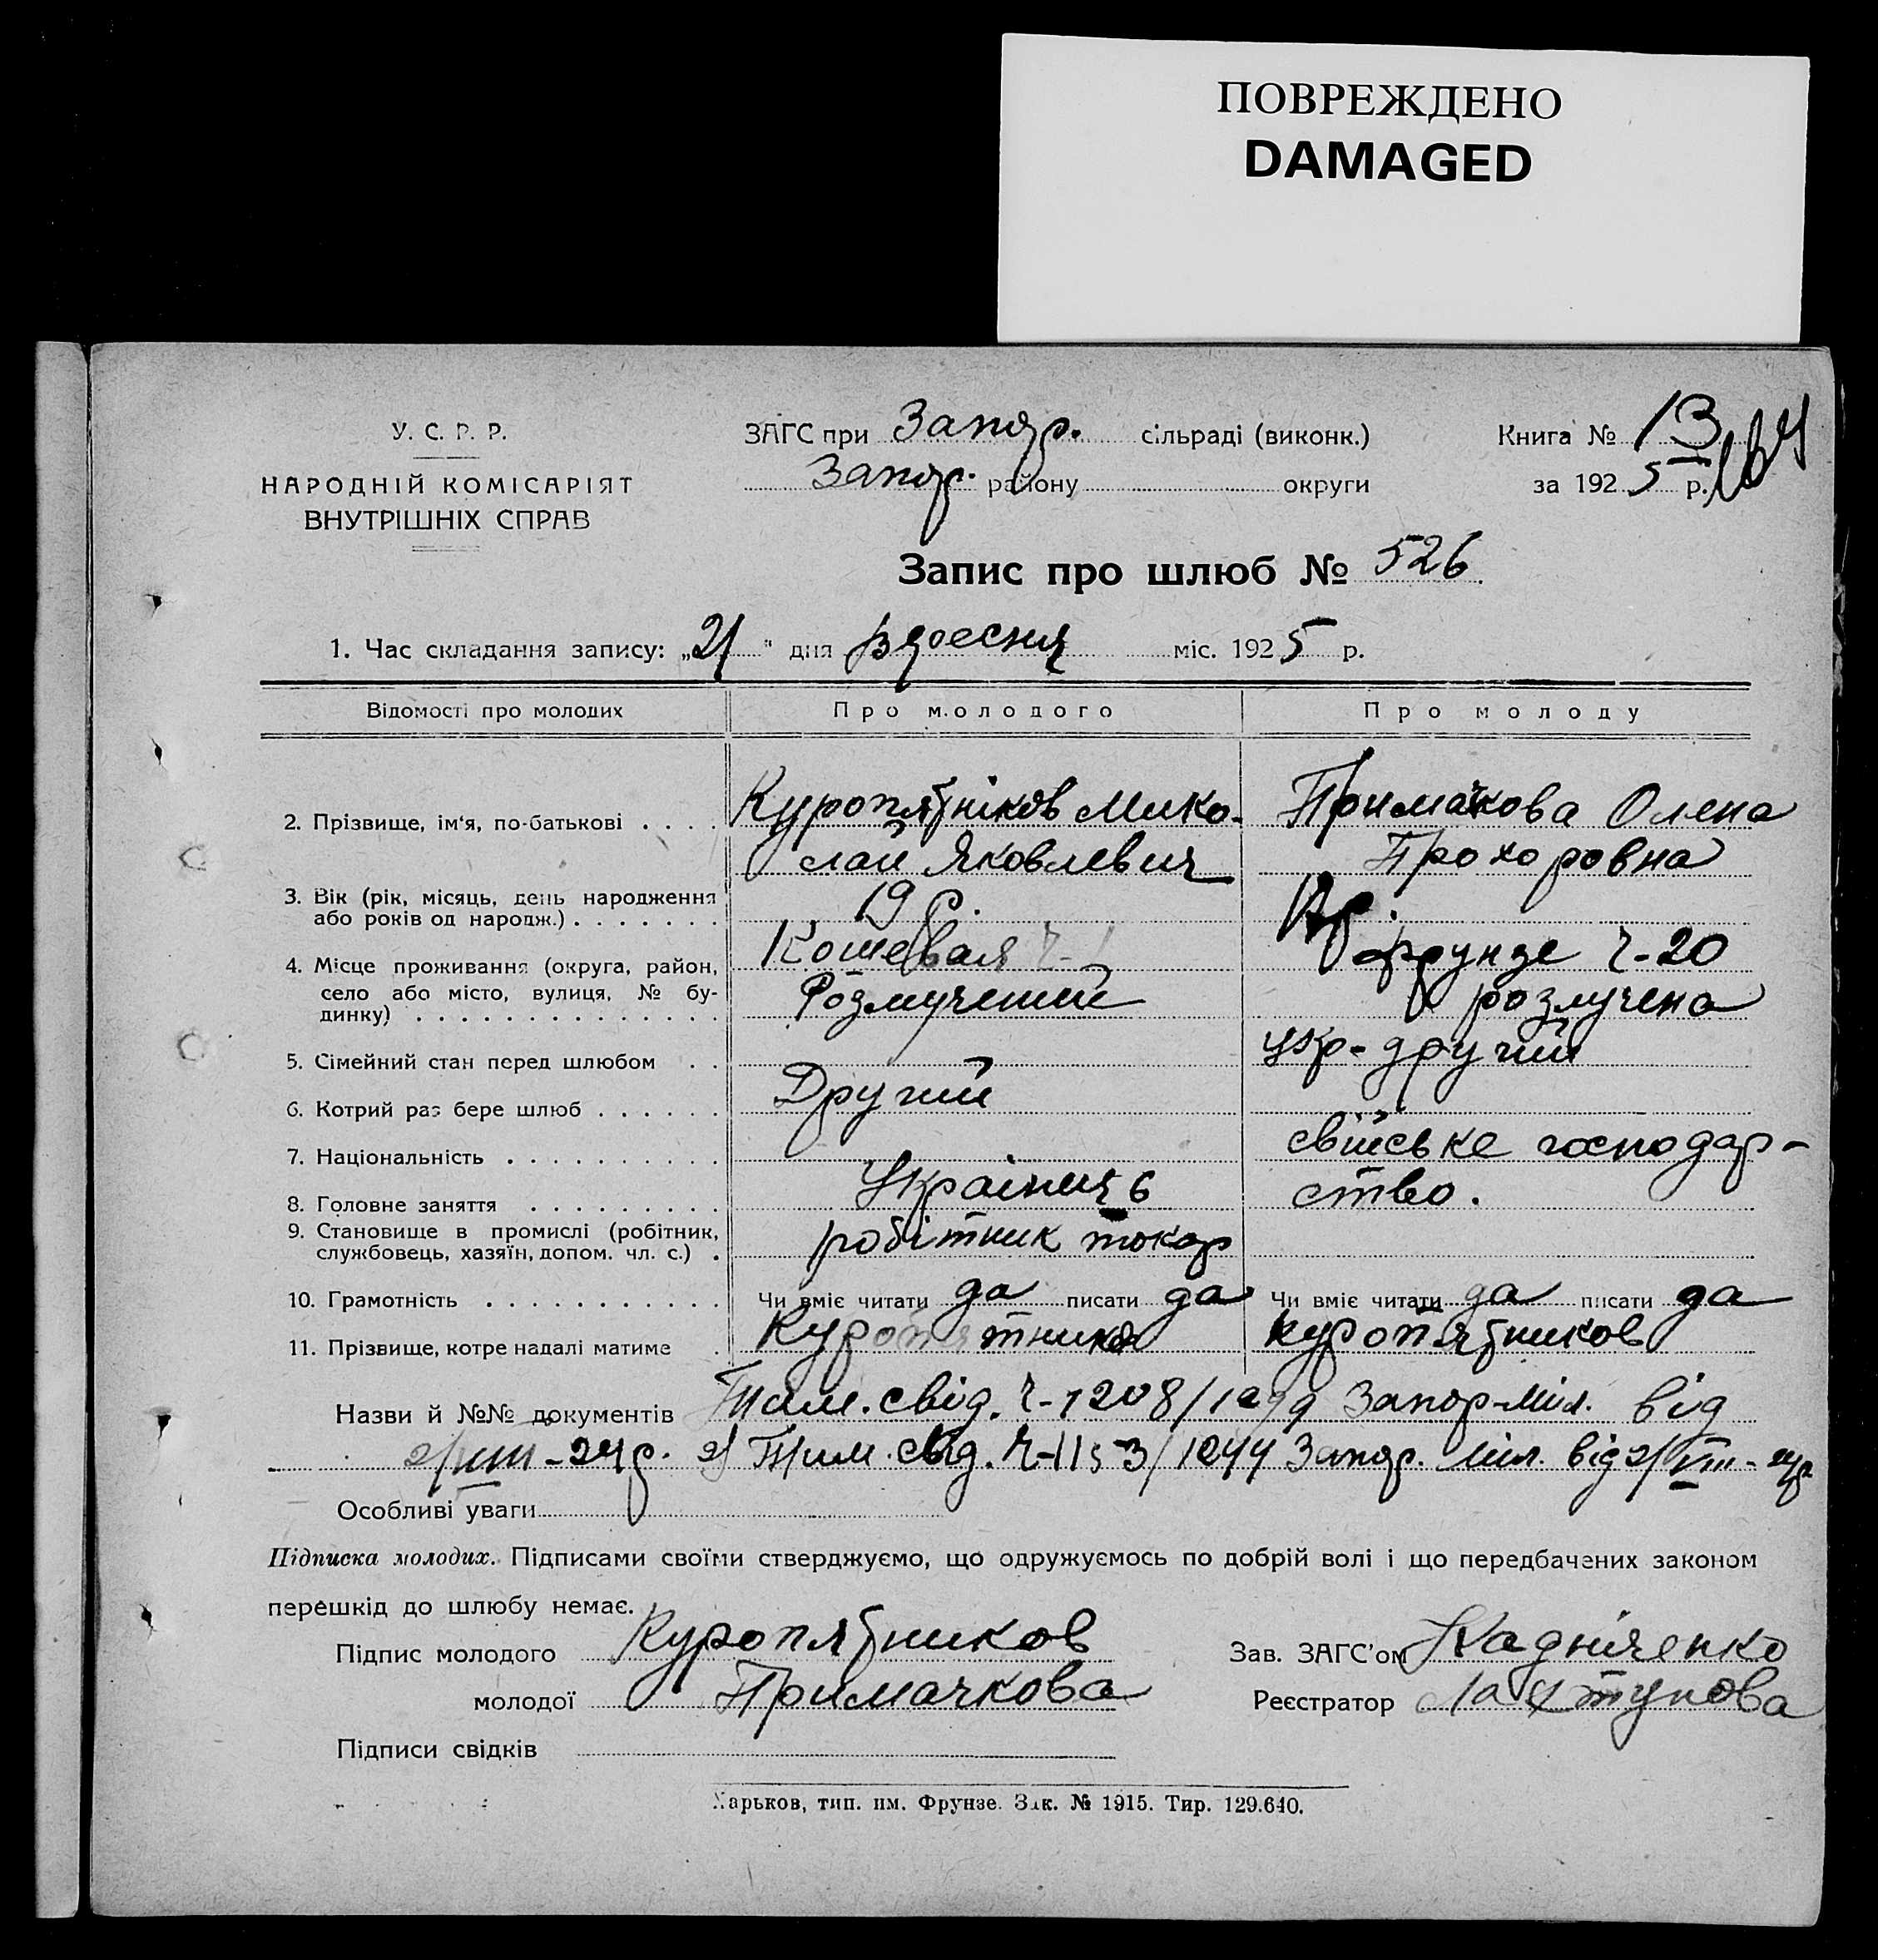 ПОВРЕЖДЕНО
DAMAGED
У. С. Р. Р.
НАРОДНІЙ КОМІСАРІЯТ
ВНУТРІШНІХ СПРАВ
ЗАГС при Запор. сільраді (виконк.)
Запор. району округи
Книга № 13
за 1925 р.
Запис про шлюб № 526
1. Час складання запису: „21" дня вересня міс. 1925 р.
Відомості про молодих Про молодого Про молоду
2. Прізвище, ім'я, по-батькові . . . . Куропятніков Мико- Примачкова Олена
лай Яковлевич Прохоровна
3. Вік (рік, місяць, день народження
або років од народж.) . . . . . . . 19 р.
4. Місце проживання (округа, район,
село або місто, вулиця, № бу-
динку) . . . . . . . . . . . . . .
Кошевая Фрунзе Ч-20
Розлучений розлучена
5. Сімейний стан перед шлюбом . . укр- другий
6. Котрий раз бере шлюб . . . . . . Другий
7. Національність . . . . . . . . . . свійське господар-
8. Головне заняття . . . . . . . . . Українец ство.
9. Становище в промислі (робітник,
службовець, хазяїн, допом. чл. с.) . робітник токар
10. Грамотність . . . . . . . . . . . Чи вміє читати да писати да Чи вміє читати да писати да
11. Прізвище, котре надалі матиме . Куропятников Куропятников
Назви й №№ документів свід. Ч-1208/ Запор-Міл. від
24 р. 2) Тим. свід. Ч-1153/1944 Запор. Міл. від
Особливі уваги
Підписка молодих. Підписами своїми стверджуємо, що одружуємось по добрій волі і що передбачених законом
перешкід до шлюбу немає.
Підпис молодого Куропятников Зав. ЗАГС'ом
молодої Примачкова Реєстратор
Підписи свідків
Харьков, тип. им. Фрунзе. Зак. № 1915. Тир. 129.640.